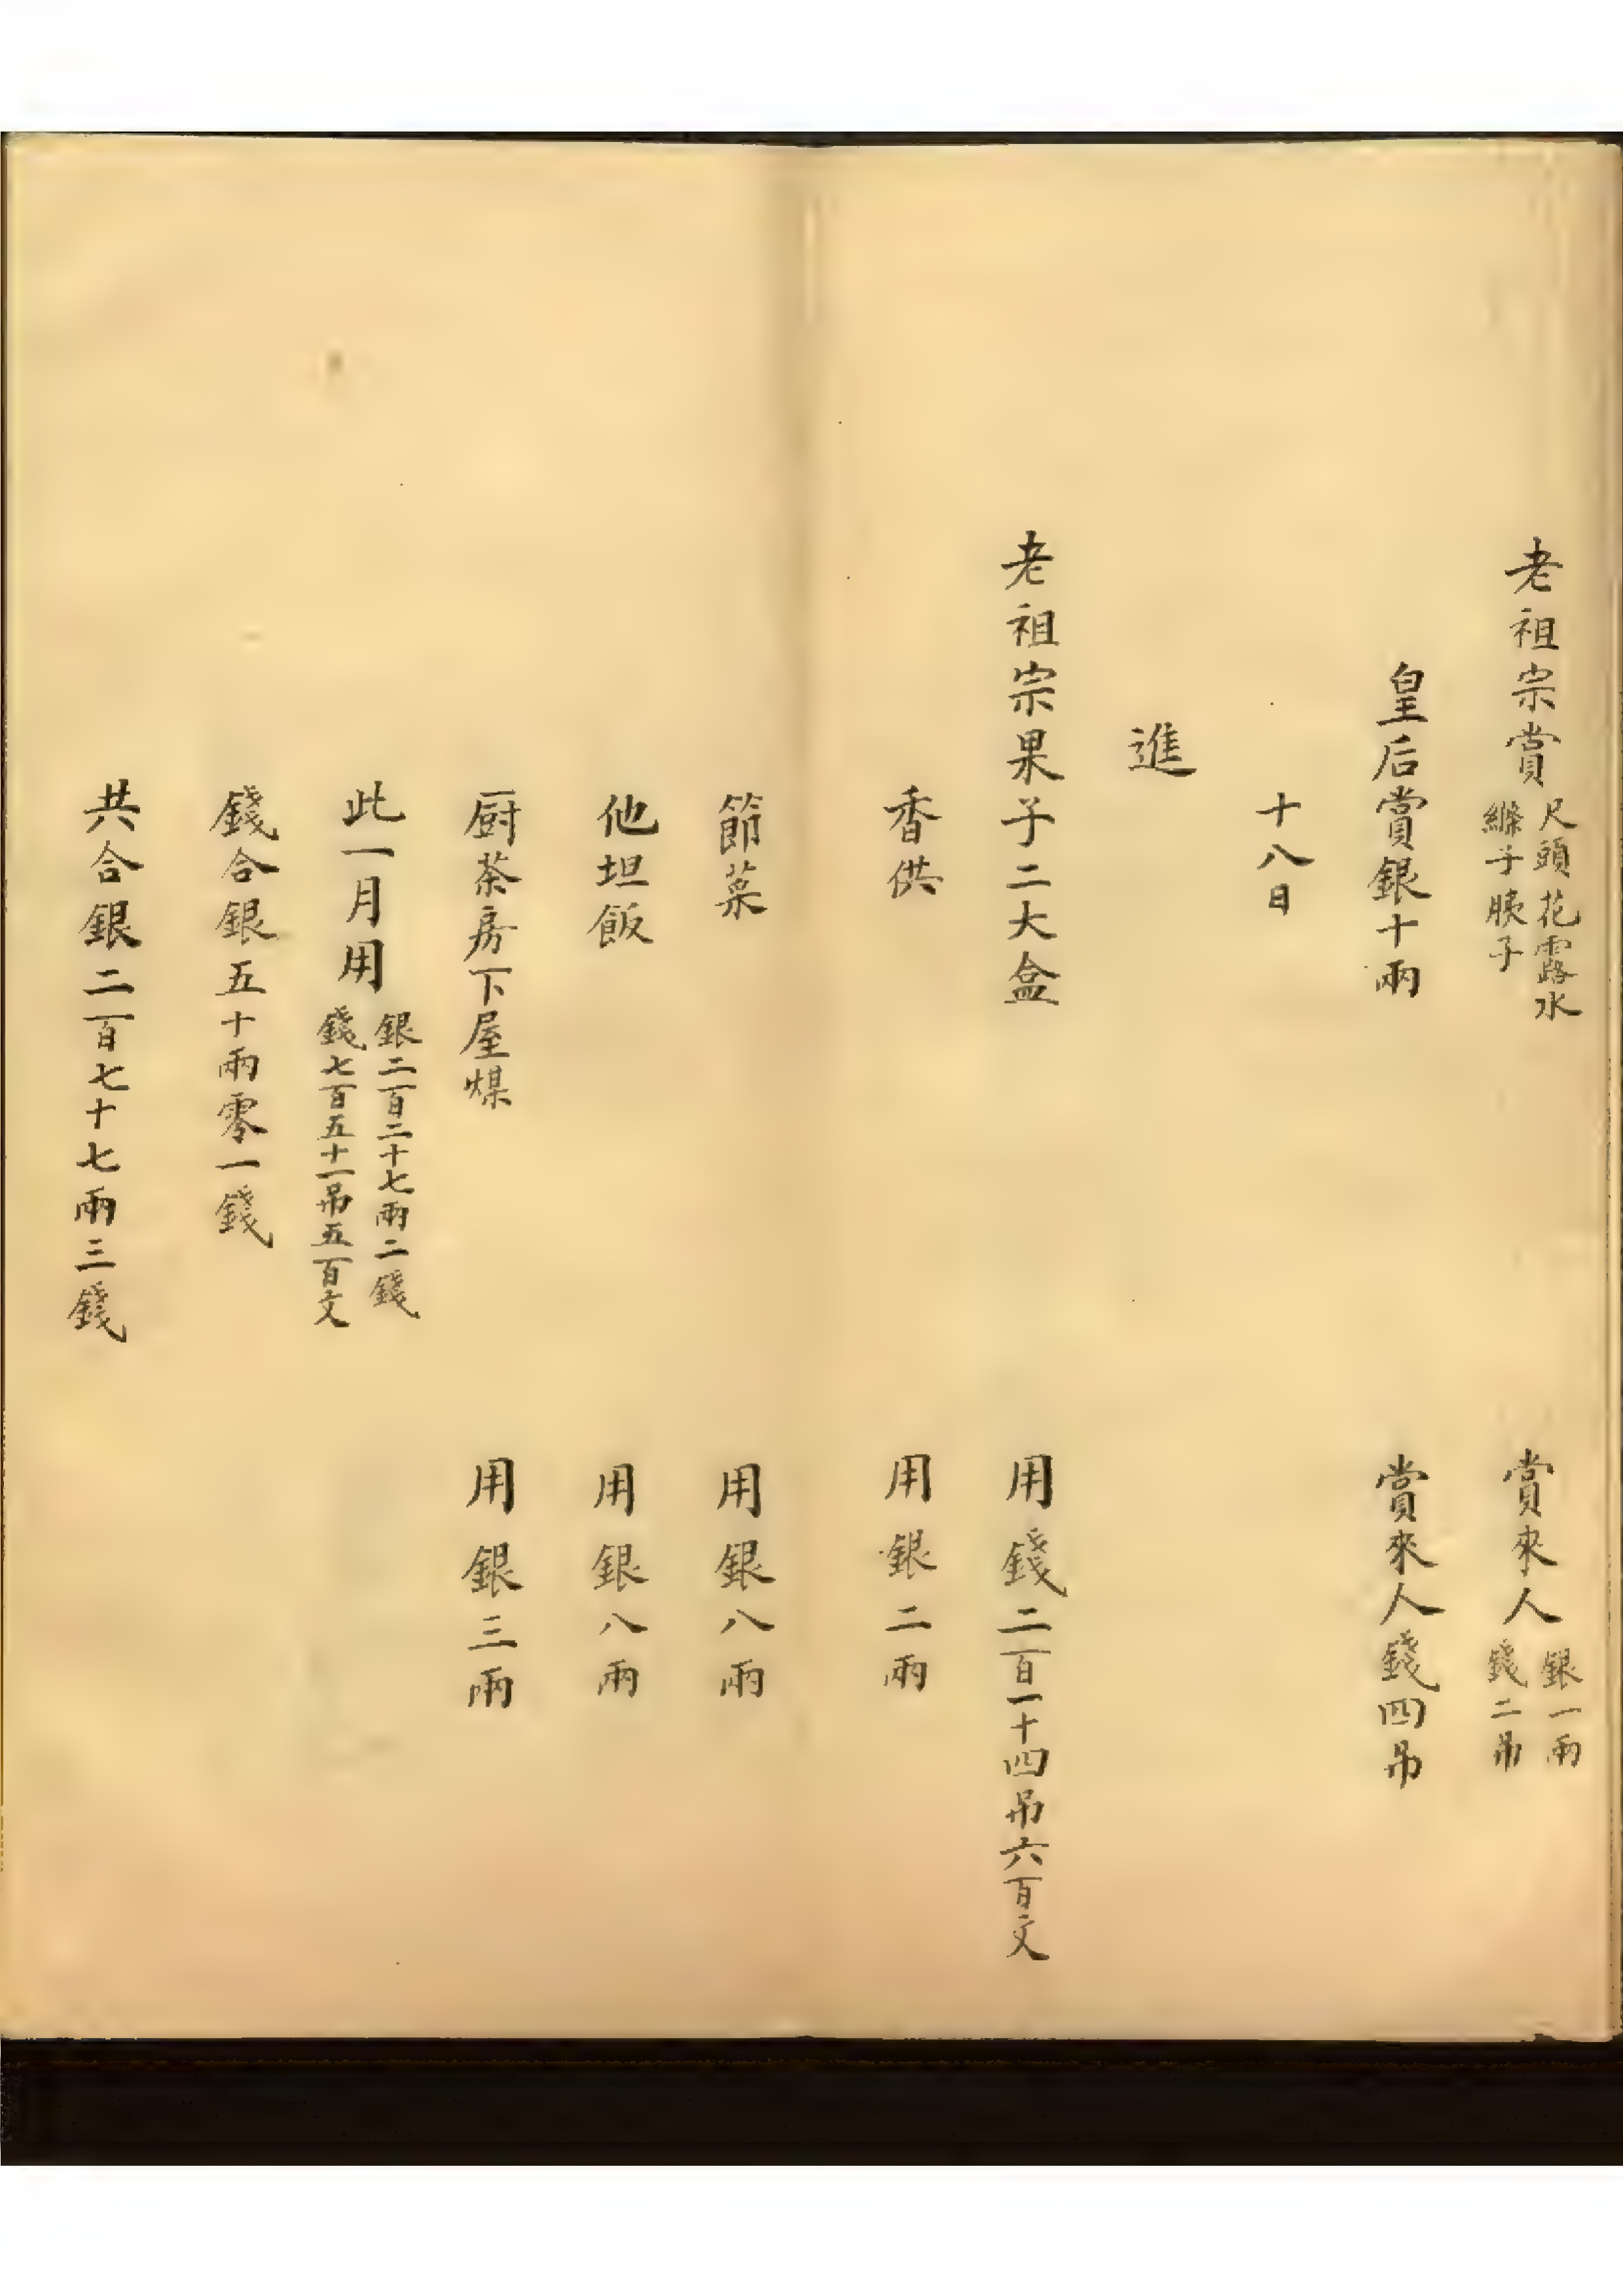 老祖宗賞尺頭花露水
縧子胰子
賞來人銀一兩
錢二吊
皇后賞銀十兩
賞來人錢四吊
十八日
進
老祖宗果子二大盒
用錢二百一十四吊六百文
香供
用銀二兩
節菜
用銀八兩
他坦飯
用銀八兩
厨茶房下屋煤
用銀三兩
此一月用銀二百二十七兩二錢
錢七百五十一吊五百文
錢合銀五十兩零一錢
共合銀二百七十七兩三錢